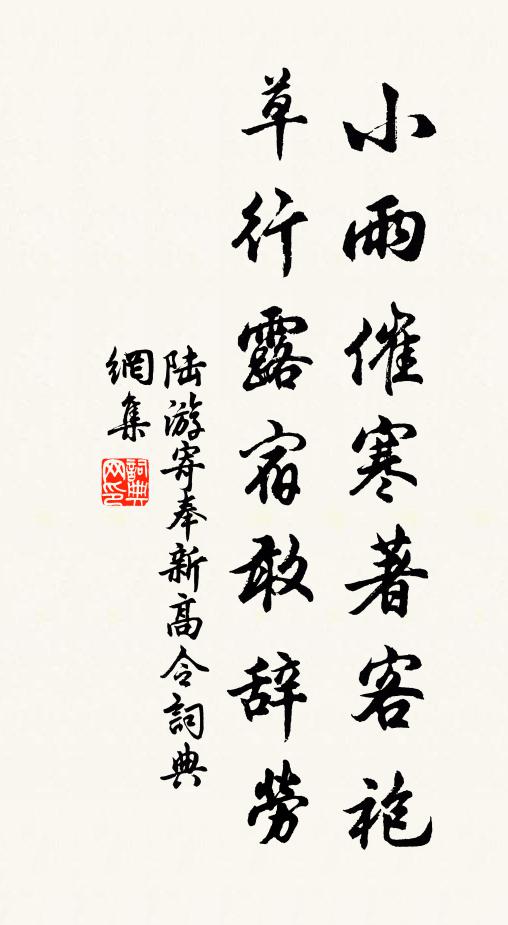 小雨催寒著客袍
草行露宿敢辞勞
陆游寄奉新高令詞典
網集
詞典网印